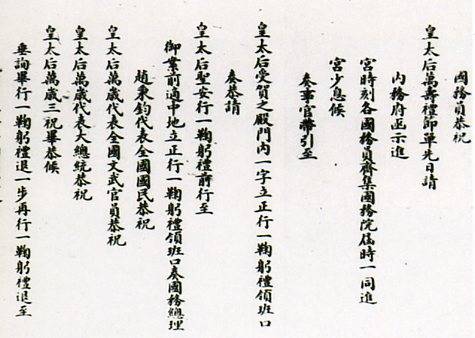 國務員恭祝
皇太后萬壽禮節單先日請
內務府函示進
宮時刻各國務員齊集國務院屆時一同進
宮少息候
奏事官帶引至
皇太后受賀之殿門內一字立正行一鞠躬禮領班口
奏恭請
皇太后聖安行一鞠躬禮前行至
御案前適中地立正行一鞠躬禮領班口奏國務總理
趙秉鈞代表全國國民恭祝
皇太后萬歲代表全國文武官員恭祝
皇太后萬歲代表大總統恭祝
皇太后萬歲三祝畢恭候
垂詢畢行一鞠躬禮退一步再行一鞠躬禮退至